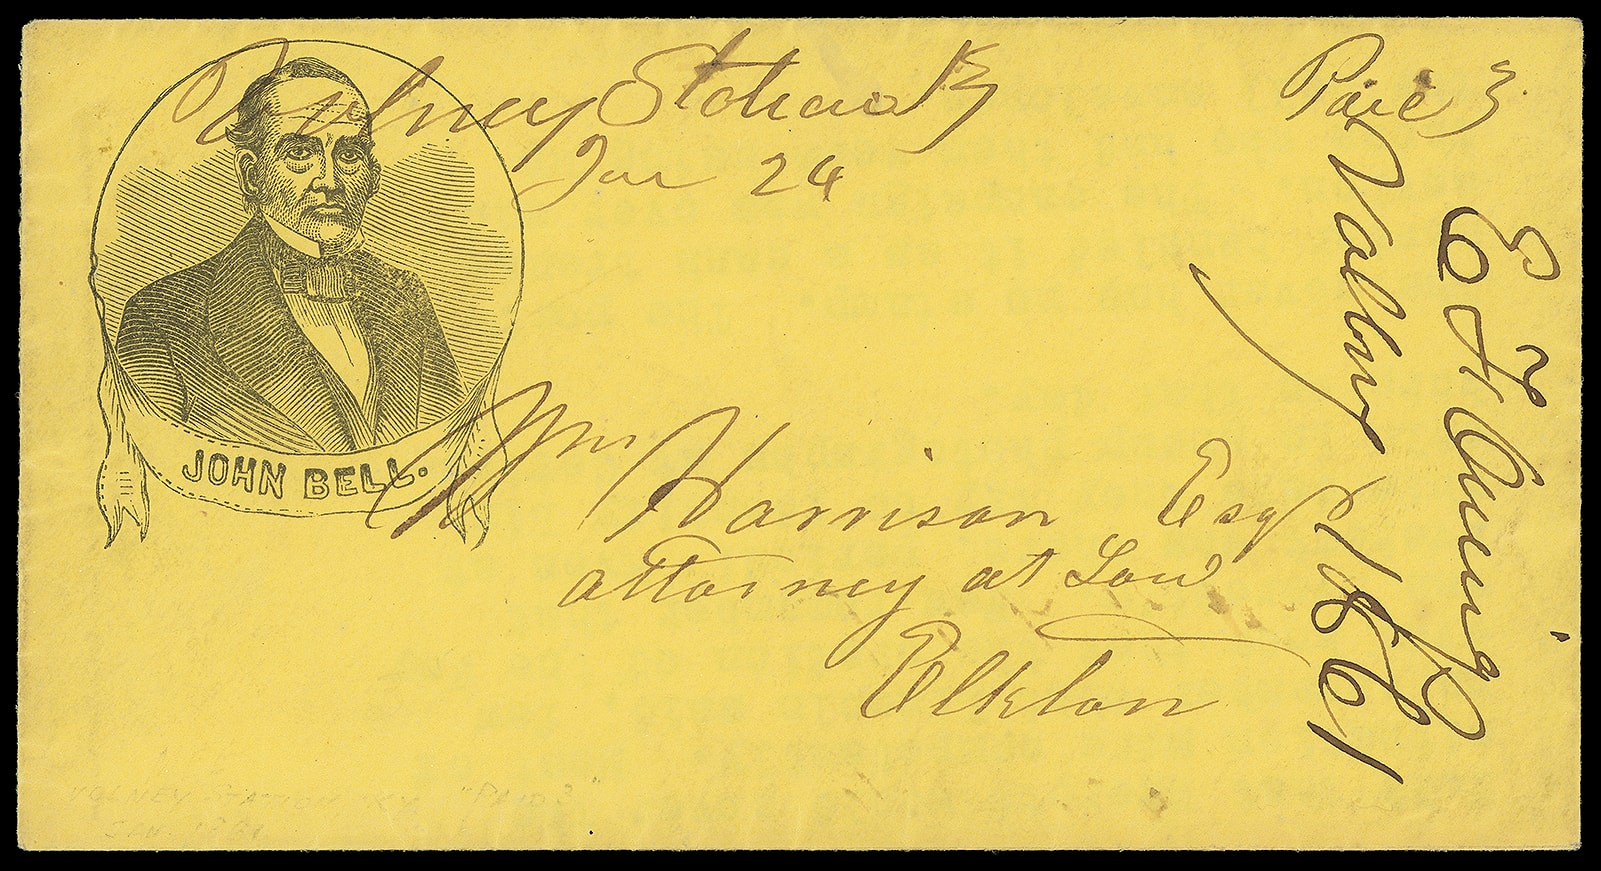 Volney Station Ky
Jan 24
Paid 3
JOHN BELL.
Wm Harrison Esqr
attorney at Law
Elkton
1861
VOLNEY STATION KY "PAID 3"
JAN. 1861